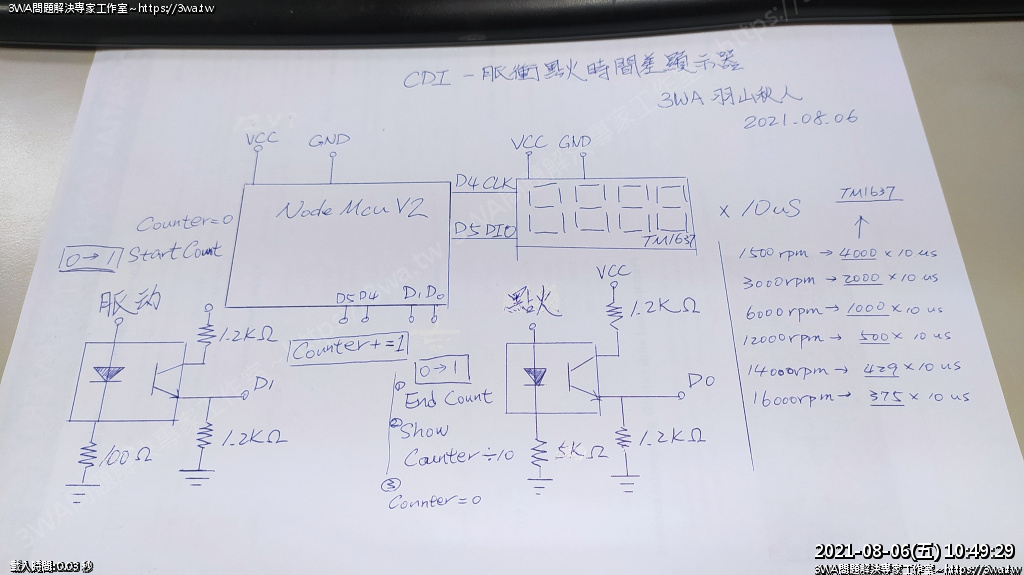 3WA問題解決專家工作室~https://3wa.tw
CDI - 脈衝點火時間差顯示器
3WA 羽山秋人
2021.08.06
VCC GND
VCC GND
Node Mcu V2
D4 CLK
D5 DIO
TM1637
x 10uS
TM1637
↑
Counter=0
0→1 Start Count
D5 D4 D1 D0
Counter+=1
脈动
1.2KΩ
D1
100Ω
1.2KΩ
0→1
① End Count
② Show
Counter÷10
③
Counter=0
點火
VCC
1.2KΩ
D0
5KΩ
1.2KΩ
1500rpm → 4000 × 10 us
3000rpm → 2000 × 10 us
6000rpm → 1000 × 10 us
12000rpm → 500 × 10 us
14000rpm → 429 × 10 us
16000rpm → 375 × 10 us
2021-08-06(五) 10:49:29
載入時間:0.03 秒
3WA問題解決專家工作室~https://3wa.tw